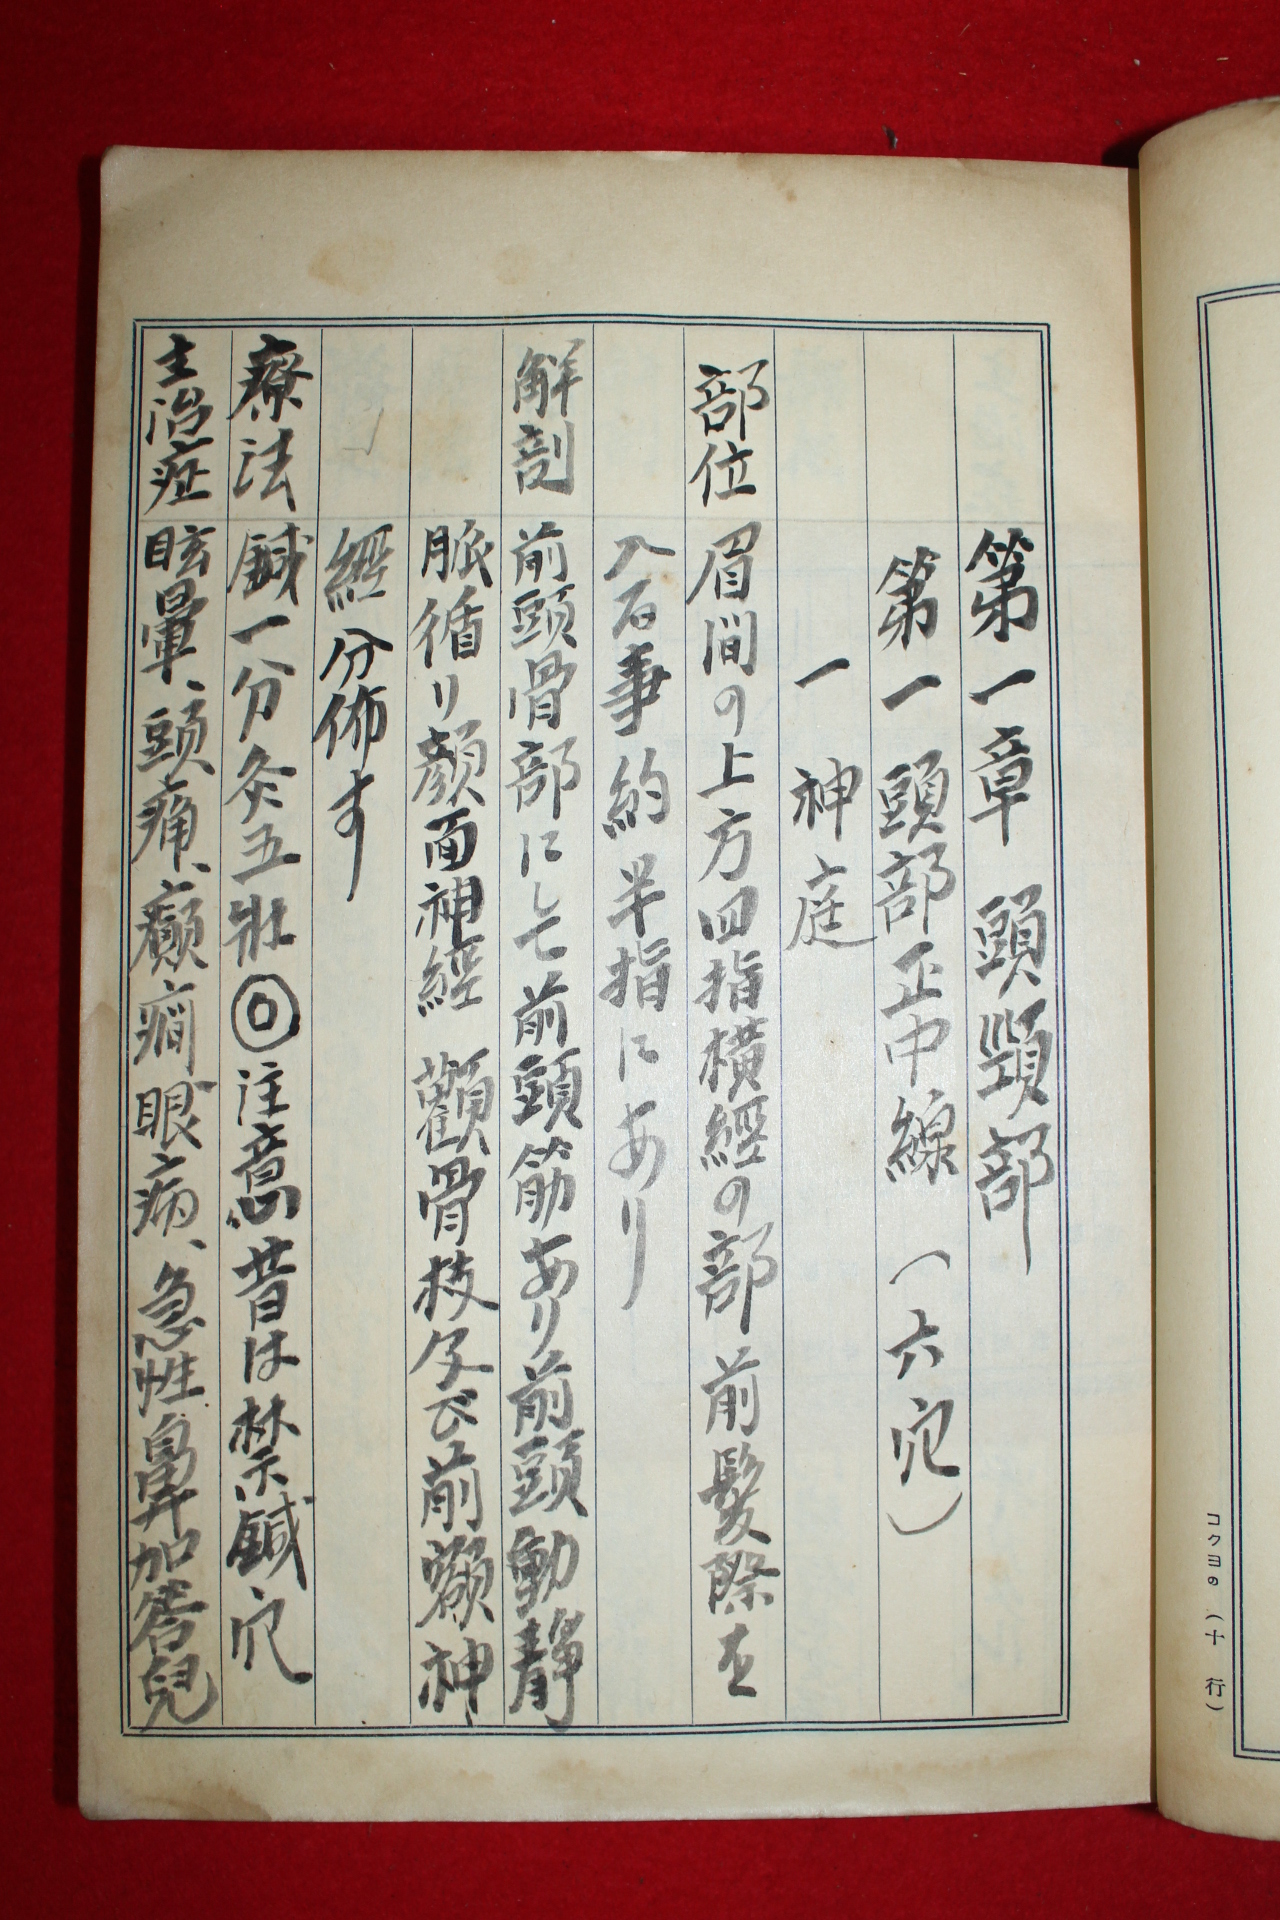 第一章 頭 部
第一 頭部正中線(六穴)
一 神庭
部位 眉間の上方四指横經の部 前髮際を
入る事約半指にあり
解剖 前頭骨部にして前頭筋あり前頭動靜
脈循り顏面神經 顴骨枝及び前額神
經分佈す
療法 鍼一分灸五壯◎注意昔は禁鍼穴
主治症 眩暈、頭痛、癲癇眼病、急性鼻加答兒
コクヨの(十行)